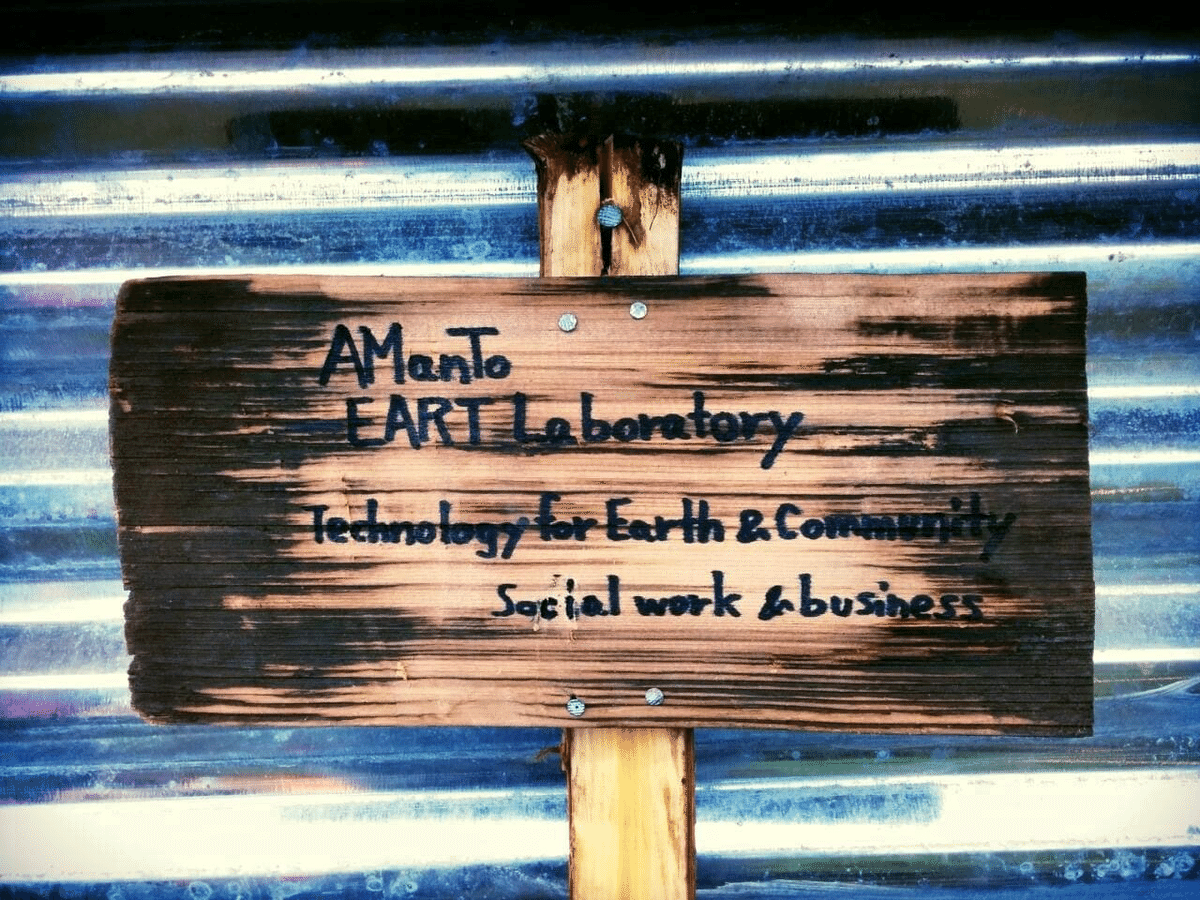 AManTo
EART Laboratory
Technology for Earth & Community
Social work & business